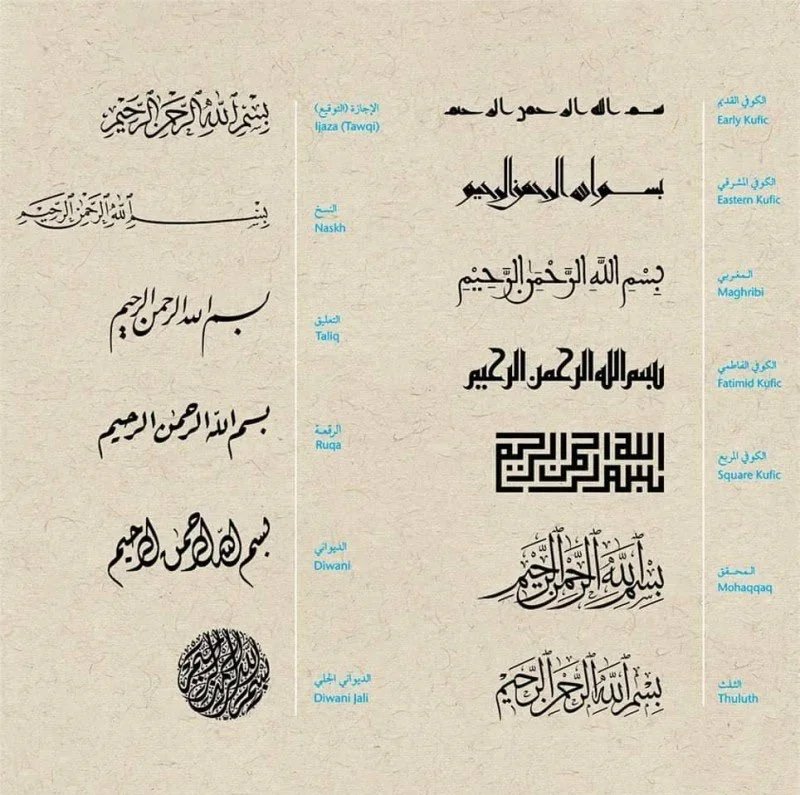 بسم الله الرحمن الرحيم
الكوفي القديم
Early Kufic
بسم الله الرحمن الرحيم
الكوفي المشرقي
Eastern Kufic
بِسْمِ اللَّهِ الرَّحْمَٰنِ الرَّحِيْمِ
المغربي
Maghribi
بسم الله الرحمن الرحيم
الكوفي الفاطمي
Fatimid Kufic
بسم الله الرحمن الرحيم
الكوفي المربع
Square Kufic
بِسْمِ اللَّهِ الرَّحْمَٰنِ الرَّحِيْمِ
المحقق
Mohaqqaq
بِسْمِ اللَّهِ الرَّحْمَٰنِ الرَّحِيْمِ
الثلث
Thuluth
بِسْمِ اللَّهِ الرَّحْمَٰنِ الرَّحِيْمِ
الإجازة (التوقيع)
Ijaza (Tawqi)
بِسْمِ اللَّهِ الرَّحْمَٰنِ الرَّحِيْمِ
النسخ
Naskh
بسم الله الرحمن الرحيم
التعليق
Taliq
بسم الله الرحمن الرحيم
الرقعة
Ruqa
بسم الله الرحمن الرحيم
الديواني
Diwani
بسم الله الرحمن الرحيم
الديواني الجلي
Diwani Jali